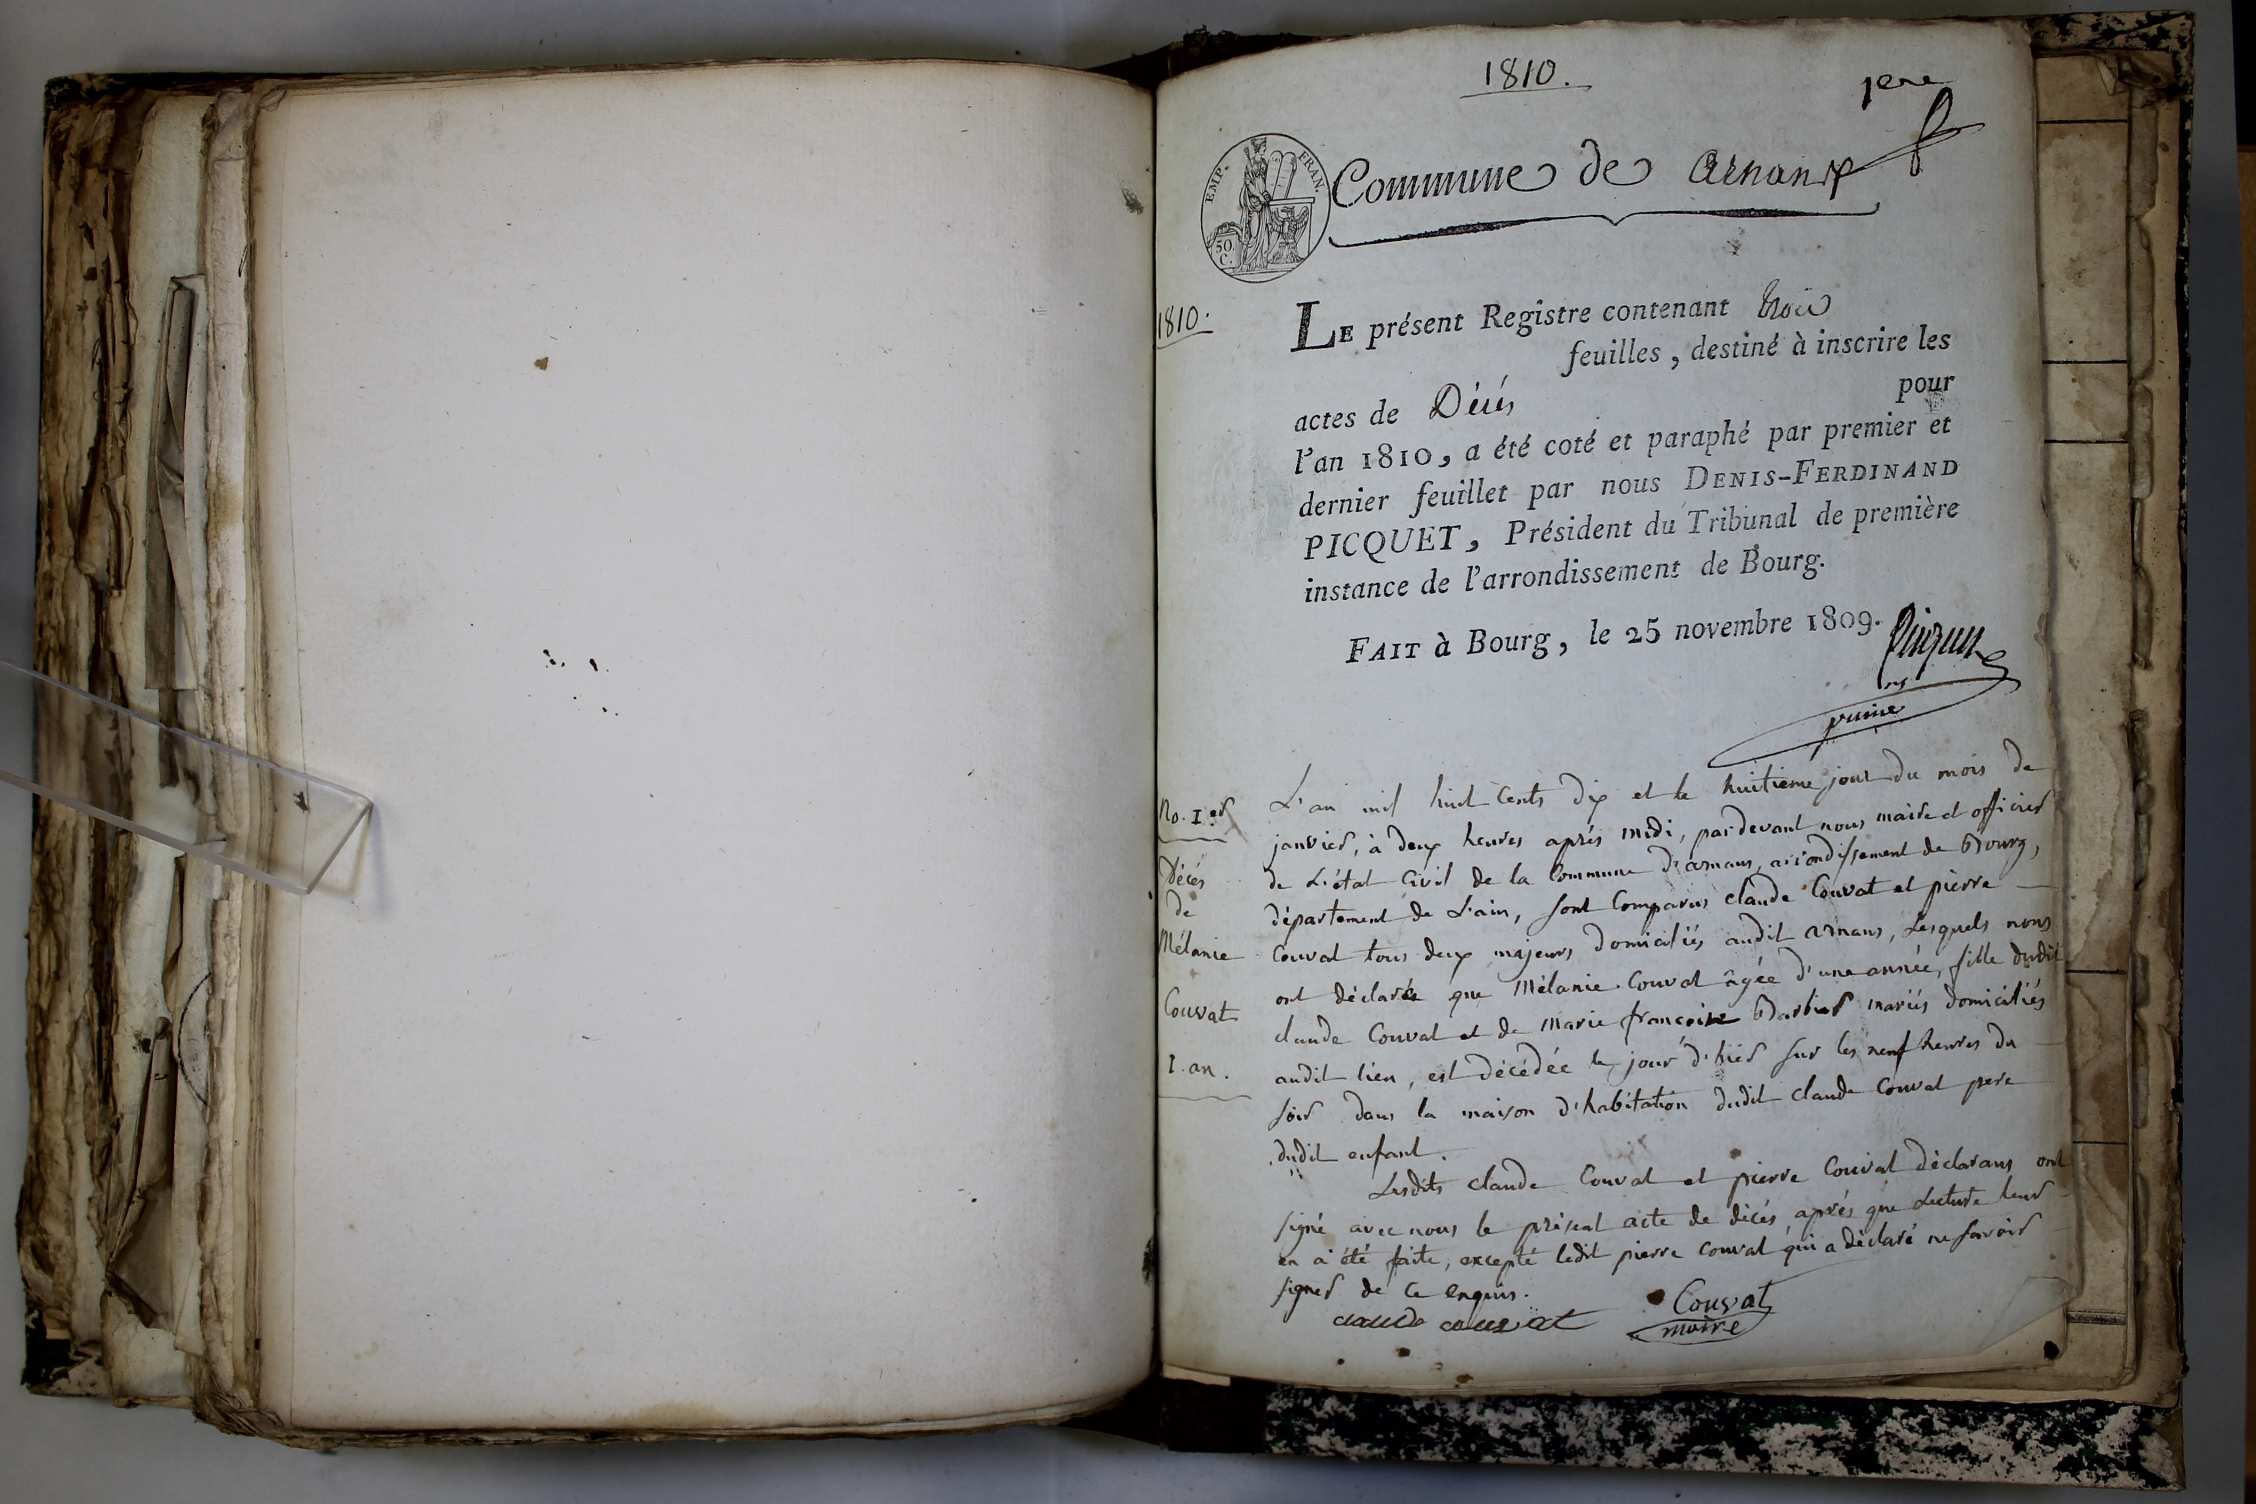 1810.
1ere
EMP. FRAN.
50.
C.
Commune de arnans
1810.
LE présent Registre contenant trois
feuilles, destiné à inscrire les
actes de Décés pour
l'an 1810, a été coté et paraphé par premier et
dernier feuillet par nous DENIS-FERDINAND
PICQUET, Président du Tribunal de première
instance de l'arrondissement de Bourg.
FAIT à Bourg, le 25 novembre 1809.
Picquet
No. 1.er
Décés
de
Mélanie
Couvat
1. an.
L'an mil huit cents dix et le huitieme jour du mois de
janvier, à deux heures après midi, pardevant nous maire et officier
de L'état Civil de la Commune d'arnans, arrondissement de Bourg,
département de L'ain, sont Comparus claude Couvat et pierre
Couvat tous deux majeurs domiciliés audit arnans, Lesquels nous
ont déclarés que Mélanie Couvat âgée d'une année, fille dudit
claude Couvat et de Marie françoise Barbier mariés domiciliés
audit lieu, est décédée le jour d'hier sur les neuf heures du
soir dans la maison d'habitation dudit claude Couvat pere
dudit enfant.
Lesdits claude Couvat et pierre Couvat déclarans ont
signé avec nous le présent acte de décés, aprés que Lecture leur
en a été faite, excepté ledit pierre Couvat qui a déclaré ne savoir
signer de ce enquis.
claude couvat
Couvat
maire